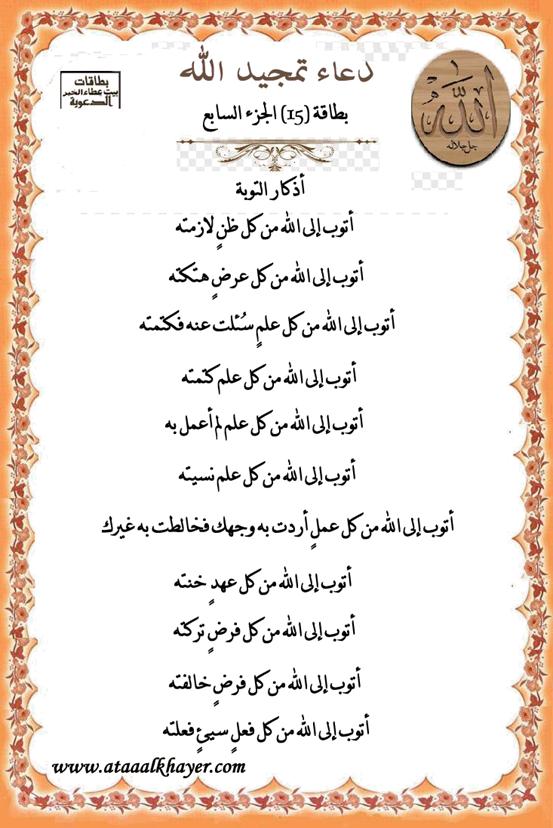 دعاء تمجيد الله
بطاقات
بيت عطاء الخير
الدعوية
الله
جل جلاله
بطاقة (15) الجزء السابع
أذكار التوبة
أتوب إلى الله من كل ظنٍ لازمته
أتوب إلى الله من كل عرضٍ هتكته
أتوب إلى الله من كل علمٍ سُئلت عنه فكتمته
أتوب إلى الله من كل علم كتمته
أتوب إلى الله من كل علم لم أعمل به
أتوب إلى الله من كل علم نسيته
أتوب إلى الله من كل عملٍ أردت به وجهك فخالطت به غيرك
أتوب إلى الله من كل عهدٍ خنته
أتوب إلى الله من كل فرضٍ تركته
أتوب إلى الله من كل فرضٍ خالفته
أتوب إلى الله من كل فعلٍ سيئٍ فعلته
www.ataaalkhayer.com